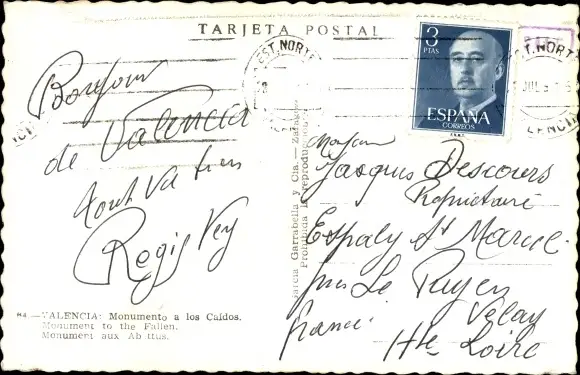 TARJETA POSTAL
EST. NORTE
3
PTAS
ESPAÑA
CORREOS
EST. NORTE
VALENCIA
Bonjour
de Valencia
tout va bien
Regis Vey
Monsieur
Jacques Descours
Propriétaire
Espaly St Marcel
près Le Puy en
Velay
Hte Loire
France
García Garrabella y Cía. — Zaragoza
Prohibida la reproducción
VALENCIA: Monumento a los Caídos.
Monument to the Fallen.
Monument aux Ab ttus.